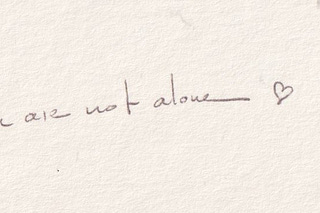 are not alone ♡